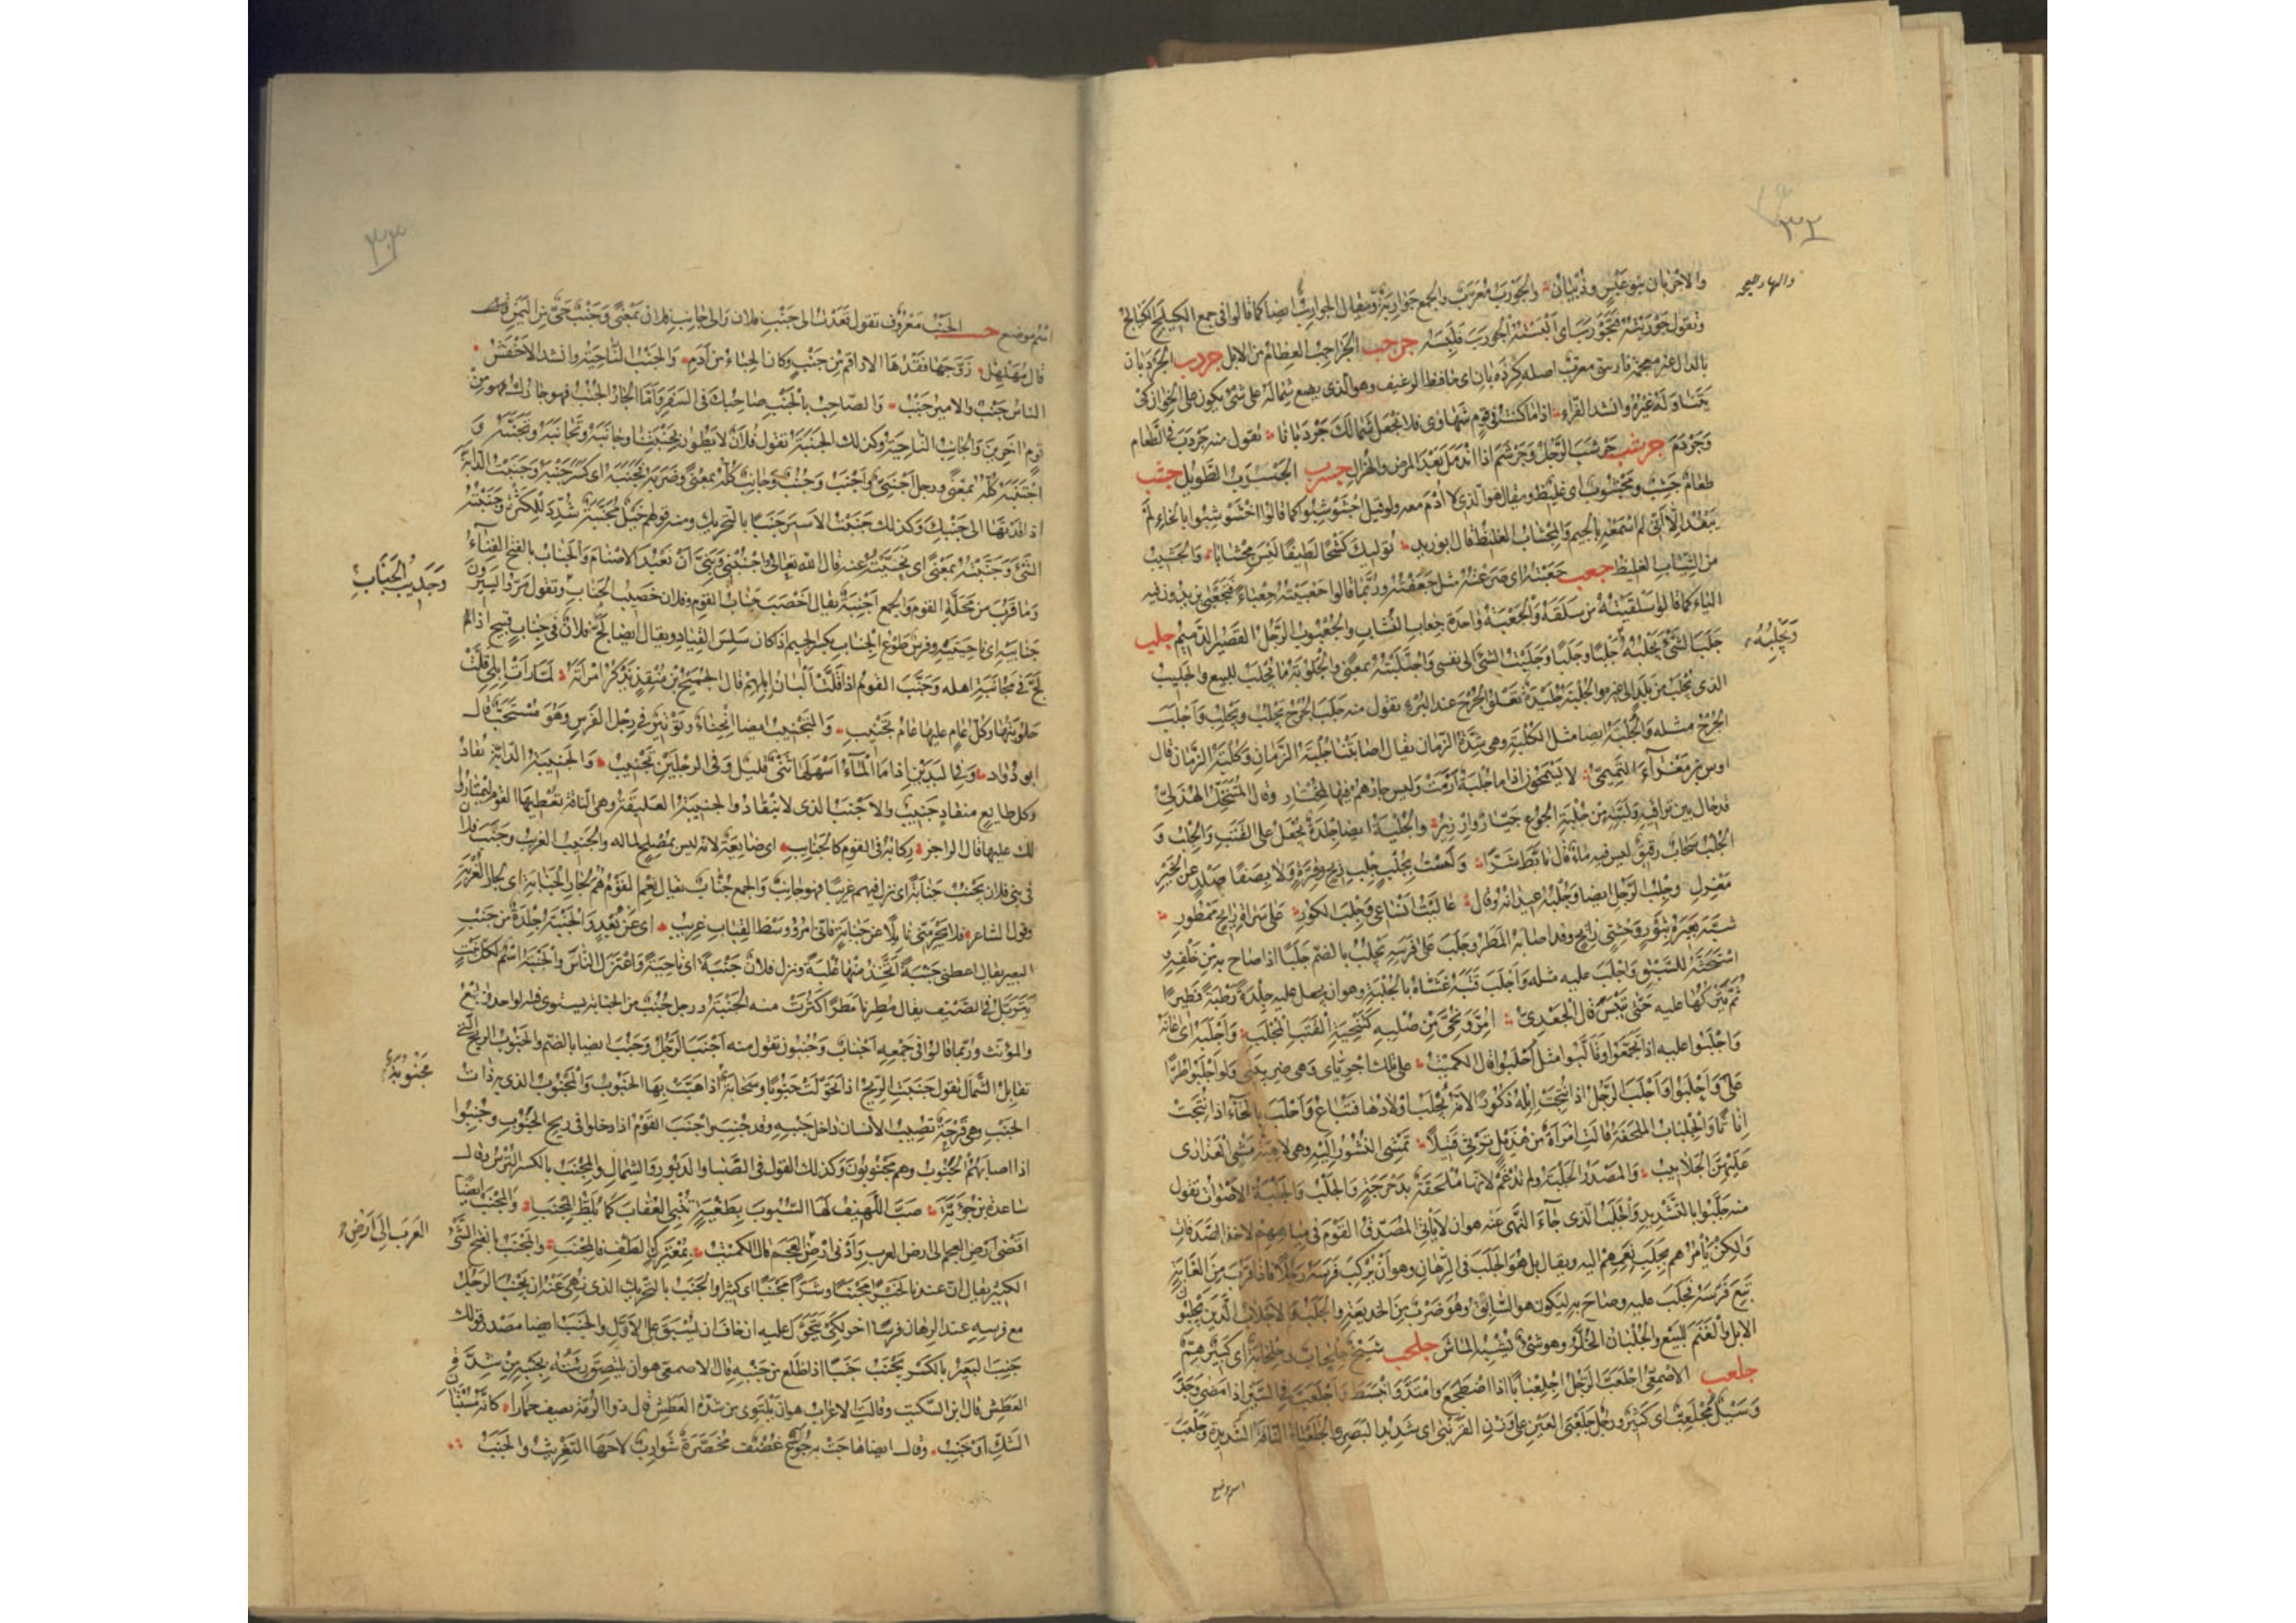 ٣٢
والاجربان بنو عَبْسٍ وذُبْيَانَ والجَوْرَبُ مُعَرَّبٌ والجمع جَوَارِبَةٌ ويقال الجوارب ايضا كما قالوا فى جمع الكيلج الكيالج
والهاء للعجمة
وتقول جَوْرَبْتُهُ فَتَجَوْرَبَ اى اَلْبَسْتُهُ الجَوْرَبَ فَلَبِسَهُ جرجب الجَرَاجِبُ العِظَامُ من الابل جردب الجَرْدَبَان
بالدال غير معجمة فارسىّ معرّب اصله كِرْدَه بَان اى حافظ الرغيف وهو الذى يضع شِمَالَهُ على شئ يكون على الخِوَان كى
يَتَنَاوَلَهُ غيرُهُ وانشد الفرّاء اذا ما كنت فى قوم شَهَاوَى فلا تجعل شمالك جردبانا تقول منه جَرْدَبَ فى الطَّعام
وَجَرْدَمَ جرشب جَرْشَبَ الرَّجُلُ وجَرْشَمَ اذا اندمل بعد المرض والهُزال جسرب الجَسْرَبُ الطَّوِيل جشب
طعامٌ جَشِبٌ ومَجْشُوبٌ اى غليظ ويقال هو الذى لا اُدْمَ معه ولو قيل اجْشَوْشَبُوا كما قالوا اخْشَوْشَبُوا بالخاء لم
يَبْعُدْ الّا اَنّى لم اسمعه بالجيم والمِجْشَابُ الغليظ قال ابو زبيد تُولِيكَ كَشْحًا لَطِيفًا لَيْسَ مِجْشَابَا والجَشِيبُ
من الثياب الغليظ جعب جَعَبْتُهُ اى صَرَعْتُهُ مثل جَعَفْتُهُ ورُبَّمَا قالوا جَعْبَيْتُهُ جِعْبَاءً فَتَجَعْبَى يزيدون فيه
الياء كما قالوا سَلْقَيْتُهُ من سَلَقَهُ والجَعْبَةُ واحدة جِعَاب النُّشَّاب والجُعْبُوبُ الرَّجُلُ القصير الدَّميم جلب
جَلَبَ الشَّئَ يَجْلِبُهُ جَلْبًا وجَلَبًا وجَلَبْتُ الشئَ الى نفسى واجْتَلَبْتُهُ بمعنى والجَلُوبَةُ ما يُجْلَبُ للبيع والجَلِيبُ
ويَجْلُبُهُ
الذى يُجْلَبُ من بَلَدٍ الى غيره والجُلْبَةُ جُلَيْدَةٌ تَعْلُو الجُرْحَ عند البُرْءِ تقول منه جَلَبَ الجُرْحُ يَجْلِبُ ويَجْلُبُ واَجْلَبَ
الجُرْحُ مثله والجُلْبَةُ ايضا مثل الكُلْبَةِ وهى شِدَّةُ الزَّمان يقال اصابَتْنَا جُلْبَةُ الزَّمانِ وكُلْبَةُ الزَّمانِ قال
اوس بن مَغْرَاءَ التَّمِيمِىُّ لا يَسْمَحُونَ اذا ما جُلْبَةٌ اَزَمَتْ وليس جارُهُمُ فيها بِمُخْتَارِ وقال المُتَنَخِّل الهُذَلِىّ
قد حال بين تراقيه ولَبَّتِهِ مِنْ جُلْبَةِ الجُوعِ جَيَّارٌ واِرْزِيزُ والجُلْبَةُ ايضا جِلْدَةٌ تُجْعَلُ على القَتَبِ والجُلْبُ و
الجِلْبُ سَحابٌ رقيقٌ ليس فيه ماءٌ قال تَاَبَّطَ شَرًّا وَلَسْتُ بِجِلْبٍ جِلْبِ رِيحٍ وَقِرَّةٍ وَلا بِصَفًا صَلْدٍ عَنِ الخَيْرِ
مَعْزِلِ وجِلْبُ الرَّحْلِ ايضا وجُلْبُهُ عِيدَانُهُ وقال عَالَيْتُ اَنْسَاعِى وَجِلْبَ الكُورِ عَلَى سَرَاةِ رَائِحٍ مَمْطُورِ
شبَّه بعيره بثَوْرٍ وَحْشِىٍّ رَائِحٍ وقد اصابه المَطَرُ وجَلَبَ على فرسه يَجْلُبُ بالضم جَلَبًا اذا صاح به من خَلْفِهِ و
اسْتَحَثَّهُ للسَّبْقِ واَجْلَبَ عليه مثله واَجْلَبَ قَتَبَهُ غَشَّاهُ بالجُلْبَةِ وهو ان يجعل عليه جِلْدَةً رَطْبَةً فَطِيرًا
ثُمَّ يَتْرُكَهَا عليه حَتَّى تَيْبَسَ قال الجَعْدِىُّ اُمِرَّ وَنُحِّىَ مِنْ صُلْبِهِ كَتَنْحِيَةِ القَتَبِ المُجْلَبِ واَجْلَبَهُ اى اعانه
واَجْلَبُوا عليه اذا تَجَمَّعُوا وتَاَلَّبُوا مثل اَحْلَبُوا قال الكميت على تلك اِجْرِيَّاىَ وهى ضَرِيبَتِى ولو اَجْلَبُوا طُرًّا
عَلَىَّ واَحْلَبُوا واَجْلَبَ الرَّجُلُ اذا نُتِجَتْ اِبِلُهُ ذُكُورًا لانّه يُجْلَبُ اولادُها فتُبَاع واَحْلَبَ بالحاء اذا نُتِجَتْ
اِنَاثًا والجِلْبَابُ المِلْحَفَةُ قالت امرأة من هُذَيْلٍ تَرْثِى قَتِيلًا تَمْشِى النُّسُورُ اِلَيْهِ وَهْىَ لاهِيَةٌ مَشْىَ العَذَارَى
عَلَيْهِنَّ الجَلابِيبُ والمَصْدَرُ الجَلْبَبَةُ ولم تُدْغَمْ لانّها مُلْحَقَةٌ بدَحْرَجَةٍ والجَلَبُ والجَلَبَةُ الاَصْوَاتُ تقول
منه جَلَّبُوا بالتشديد والجَلَبُ الذى جاء النَّهْىُ عنه هو ان لا يَاْتِىَ المُصَدِّقُ القَوْمَ فى مِيَاهِهِمْ لاخذ الصَّدَقَاتِ
ولكن يَاْمُرُهُم بِجَلَبِ نَعَمِهِمْ اليه ويقال بل هو الجَلَبُ فى الرِّهَانِ وهو ان يُرْكِبَ فَرَسَهُ رَجُلًا فاذا قَرُبَ مِنَ الغَايَةِ
تَبِعَ فَرَسَهُ فجَلَبَ عليه وصاح به ليكون هو السَّابِقَ وهُوَ ضَرْبٌ مِنَ الخديعة والجَلَبُ والاَجْلابُ الَّذِينَ يَجْلِبُونَ
الابل والغَنَمَ للبَيْعِ والجُلْبَانُ الخُلَّرُ وهو شئٌ يُشْبِهُ المَاشَ جلحب شَيْخٌ جِلْحَابٌ وجِلْحَابَةٌ اى كَبِيرٌ هِمٌّ
جلعب الاصمعىّ اجْلَعَبَّ الرَّجُلُ اجْلِعْبَابًا اذا اضْطَجَعَ وامْتَدَّ وانْبَسَطَ واجْلَعَبَّ فى السَّيْرِ اذا مَضَى وجَدَّ
وسَيْلٌ مُجْلَعِبٌّ اى كَثِيرٌ ورجُلٌ جَلَعْبَى العَيْنِ على وزن القَرَنْبَى اى شَدِيدُ البَصَرِ والجَلَعْبَاةُ النَّاقَةُ الشَّدِيدَةُ وجَلْعَبٌ
اسم موضع
٣٣
اسْمُ موضع جنب الجَنْبُ مَعْرُوف تقول قَعَدْتُ الى جَنْبِ فلان والى جانِبِ فلان بمعنًى وجَنْبٌ حَىٌّ من اليَمَنِ
قال مُهَلْهِلٌ زَوَّجَهَا فَقْدُهَا الاَراقِمَ مِنْ جَنْبٍ وكان الحِبَاءُ مِنْ اَدَمِ والجَنْبُ النَّاحِيَةُ وانشد الاَخْفَشُ
الناسُ جَنْبٌ والاميرُ جَنْبُ والصّاحِبُ بالجَنْبِ صاحِبُكَ فى السَّفَرِ واَمَّا الجَارُ الجُنُبُ فهو جارُكَ مِنْ
قومٍ آخَرِينَ والجَانِبُ النَّاحِيَةُ وكذلك الجَنَبَةُ تقول فُلانٌ لا يَطُورُ بِجَنَبَتِنَا وجانَبَهُ وتَجَانَبَهُ وتَجَنَّبَهُ و
اجْتَنَبَهُ كُلُّهُ بمعنًى ورجل اَجْنَبِىٌّ واَجْنَبُ وجُنُبٌ وجَانِبٌ كُلُّهُ بمعنًى وضَرَبَهُ فَجَنَبَهُ اى كَسَرَ جَنْبَهُ وجَنَبْتُ الدَّابَّةَ
اذا قُدْتَهَا الى جَنْبِكَ وكذلك جَنَبْتُ الاَسِيرَ جَنَبًا بالتحريك ومنه قولهم خَيْلٌ مُجَنَّبَةٌ شُدِّدَ لِلْكَثْرَةِ وجَنَبْتُهُ
الشَّئَ وجَنَّبْتُهُ بمعنًى اى نَحَّيْتُهُ عنه قال اللّه تعالى واجْنُبْنِى وبَنِىَّ اَنْ نَعْبُدَ الاَصْنَامَ والجَنَابُ بالفتح الفِنَاءُ
وما قَرُبَ من مَحَلَّةِ القومِ والجمع اَجْنِبَةٌ يقال اَخْصَبَ جَنَابُ القَوْمِ وفلان خَصِيبُ الجَنَابِ وتقول مَرُّوا يَسِيرُونَ
وَجَدِيبُ الجَنَابِ
جَنَابَيْهِ اى ناحِيَتَيْهِ وفرس طَوْعُ الجِنَابِ بكسر الجيم اذا كان سَلِسَ القِيَادِ ويقال ايضا لَجَّ فلانٌ فى جِنَابٍ قبيحٍ اذا
لَجَّ فى مُجَانَبَةِ اهله وجَنَّبَ القومُ اذا قَلَّتْ اَلْبَانُ اِبِلِهِمْ قال الجُمَيْحُ بن مُنْقِذٍ يَذْكُرُ امْرَاَتَهُ لَمَّا رَاَتْ اِبِلِى قَلَّتْ
حَلُوبَتُهَا وكُلُّ عَامٍ عليها عَامُ تَجْنِيبِ والتَّجْنِيبُ ايضا انْحِنَاءٌ وتَوْتِيرٌ فى رِجْلِ الفَرَسِ وهُوَ مُسْتَحَبٌّ قال
ابو دُوَاد وفى اليَدَيْنِ اذا ما المَاءُ اَسْهَلَهَا ثَنْىٌ قَلِيلٌ وفى الرِّجْلَيْنِ تَجْنِيبُ والجَنِيبَةُ الدَّابَّةُ تُقَادُ
وكل طايعٍ منقادٍ جَنِيبٌ والاَجْنَبُ الذى لا يَنْقَادُ والجَنِيبَةُ العَلِيقَةُ وهى النَّاقَةُ تُعْطِيهَا القَوْمَ لِيَمْتَارُوا
لك عليها قال الراجز رِكَابُهُ فى القَوْمِ كالجَنَائِبِ اى ضَايِعَةٌ لانّه ليس بمُصْلِحٍ لماله والجَنِيبُ الغريب وجَنَبَ فلانٌ
فى بنى فلان يَجْنُبُ جَنَابَةً اى نزل فيهم غَرِيبًا فهو جانِبٌ والجمع جُنَّابٌ يقال نِعْمَ القَوْمُ هُمْ لِجَارِ الجَنَابَةِ اى لجار الغُرْبَةِ
وقول الشاعر فلا تَحْرِمَنِّى نَايِلًا عَنْ جَنَابَةٍ فَاِنِّى امْرُؤٌ وَسْطَ القِبَابِ غَرِيبُ اى عَنْ بُعْدٍ والجَنْبَةُ جِلْدَةٌ مِنْ جَنْبِ
البعير يقال اعطنى جَنْبَةً اَتَّخِذْ مِنْهَا عُلْبَةً ونزل فلانٌ جَنْبَةً اى ناحِيَةً واعْتَزَلَ النَّاسَ والجَنْبَةُ اسْمٌ لكل نَبْتٍ
يَتَرَبَّلُ فى الصَّيْفِ يقال مُطِرْنَا مَطَرًا كَثُرَتْ منه الجَنْبَةُ ورجل جُنُبٌ من الجَنَابة يستوى فيه الواحد والجمع
والمؤنث ورُبَّمَا قالوا فى جَمْعِهِ اَجْنَابٌ وجُنُبُونَ تقول منه اَجْنَبَ الرَّجُلُ وجَنُبَ ايضا بالضم والجَنُوبُ الريحُ الَّتِى
تقابِلُ الشَّمَالَ تقول جَنَبَتِ الرِّيحُ اذا تَحَوَّلَتْ جَنُوبًا وسَحَابَةٌ اذا هَبَّتْ بِهَا الجَنُوبُ والمَجْنُوبُ الذى به ذاتُ
مَجْنُوبَةٌ
الجَنْبِ وهى قَرْحَةٌ تُصِيبُ الانسان داخِلَ جَنْبِهِ وقد جُنِبَ واَجْنَبَ القَوْمُ اذا دخلوا فى ريح الجَنُوبِ وجُنِبُوا
اذا اصابَتْهُمُ الجَنُوبُ وهم مَجْنُوبُونَ وكذلك القول فى الصَّبَا والدَّبُورِ والشَّمَالِ والمِجْنَبُ بالكسر التُّرْسُ وقال
ساعدة بن جُؤَيَّةَ صَبَّ اللَّهِيفُ لَهَا السُّبُوبَ بِطَغْيَةٍ تُنْبِى العُقَابَ كَمَا يُلَطُّ المِجْنَبُ والمِجْنَبُ ايضًا
اَقْصَى اَرْضِ العجم الى ارض العرب واَدْنَى ارْضِ العجم قال الكميت بِمُعْتَرَكِ الطَّفِّ فالمِجْنَبِ والمَجْنَبُ بالفتح الشَّئُ
العَرَبِ اِلَى اَرْضِ
الكثير يقال انّ عندنا لَخَيْرًا مَجْنَبًا وشَرًّا مَجْنَبًا اى كثيرا والجَنَبُ بالتحريك الذى نُهِىَ عَنْهُ ان يَجْنُبَ الرَّجُلُ
مع فرسه عند الرهان فرسًا آخر لكى يتحوّل عليه ان خاف ان يُسْبَقَ على الاَوَّلِ والجَنَبُ ايضا مَصْدَر قولك
جَنِبَ البَعِيرُ بالكسر يَجْنَبُ جَنَبًا اذا ظَلَعَ من جَنْبِهِ قال الاصمعى هو ان تلتصق رِئَتُهُ بجَنْبِهِ مِنْ شِدَّةِ
العَطَشِ قال ابن السّكيت وقالت الاعراب هو ان يَلْتَوِىَ من شدّة العطش قال ذو الرُّمَّة يصف حِمَارًا كَاَنَّهُ مُسْتَبَانُ
الشَّكِّ اَوْ جَنِبُ وقال ايضا هَاجَتْ بِهِ جُوَّعٌ غُضْفٌ مُخَصَّرَةٌ شَوَازِبٌ لاحَهَا التَّغْرِيثُ والجَنَبُ